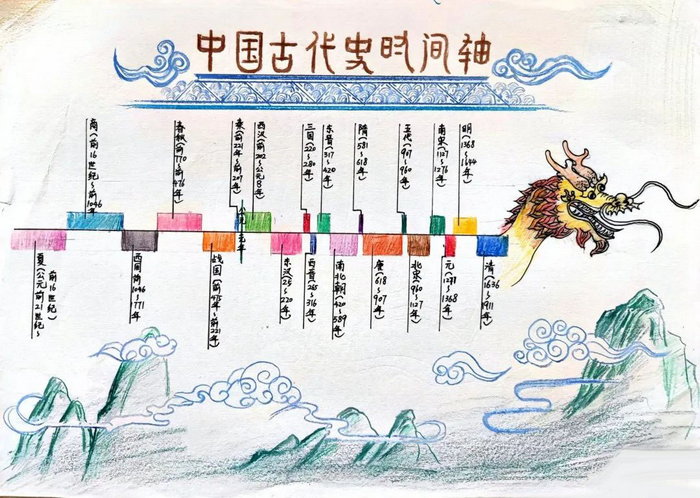 中国古代史时间轴
夏(公元前21世纪~前16世纪)
商(前16世纪~前1046年)
西周前1046~771年
春秋(前770~前476年)
战国(前475年~前221年)
秦(前221年~前207年)
公元元年
西汉(前202~公元8年)
东汉(25~220年)
三国(220~280年)
西晋(265~316年)
东晋(317~420年)
南北朝(420~589年)
隋(581~618年)
唐(618~907年)
五代(907~960年)
北宋(960~1127年)
南宋(1127~1276年)
元(1271~1368年)
明(1368~1644年)
清(1636~1911年)